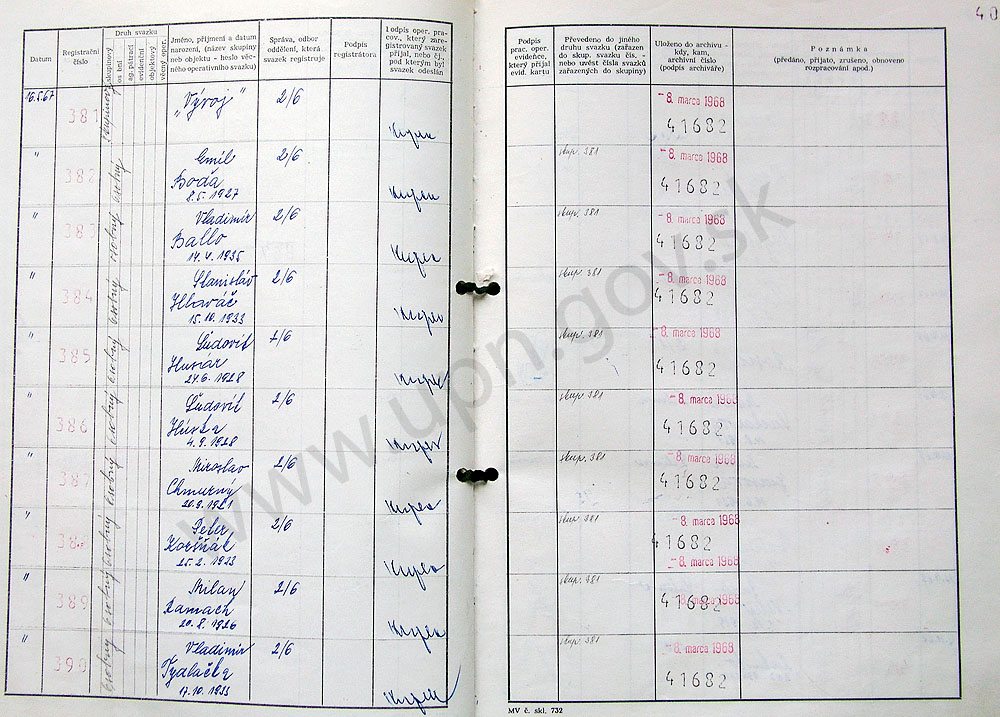 40
Datum
Registrační číslo
Druh svazku
skupinový
osobní
ag. pátrací
evidenční
objektový
věcný oper.
Jméno, příjmení a datum
narození, (název skupiny
neb objektu - heslo věc-
ného operativního svazku)
Správa, odbor
oddělení, která
svazek registruje
Podpis
registrátora
Podpis oper. pra-
cov., který zare-
gistrovaný svazek
přijal, nebo čj.,
pod kterým byl
svazek odeslán
Podpis
prac. oper.
evidence,
který přijal
evid. kartu
Převedeno do jiného
druhu svazku (zařazen
do skup. svazku čís. -
nebo uvést čísla svazků
zařazených do skupiny)
Uloženo do archivu -
kdy, kam,
archivní číslo
(podpis archiváře)
Poznámka
(předáno, přijato, zrušeno, obnoveno
rozpracování apod.)
16.5.67 381 skupinový „Vývoj" 2/6
- 8. marca 1968
41682
" 382 osobný Emil 2/6
Boďa
8.5.1927
skup. 381 - 8. marca 1968
41682
" 383 osobný Vladimír 2/6
Ballo
14.4.1935
skup. 381 - 8. marca 1968
41682
" 384 osobný Stanislav 2/6
Hlaváč
15.10.1933
skup. 381 - 8. marca 1968
41682
" 385 osobný Ľudovít 2/6
Husár
24.6.1928
skup. 381 - 8. marca 1968
41682
" 386 osobný Ľudovít 2/6
4.9.1928
skup. 381 - 8. marca 1968
41682
" 387 osobný Miroslav 2/6
Chmurný
20.9.1921
skup. 381 - 8. marca 1968
41682
" 388 osobný Peter 2/6
Koršňák
25.2.1923
skup. 381 - 8. marca 1968
41682
- 8. marca 1968
" 389 osobný Milan 2/6
Ramach
20.8.1926
skup. 381 - 8. marca 1968
41682
" 390 osobný Vladimír 2/6
Tydlačka
17.10.1933
skup. 381 - 8. marca 1968
41682
MV č. skl. 732
www.upn.gov.sk